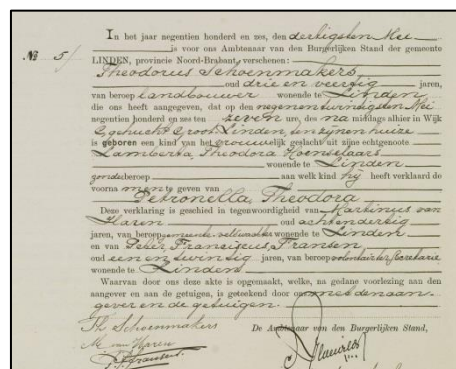 In het jaar negentien honderd en zes, den dertigsten Mei
is voor ons Ambtenaar van den Burgerlijken Stand der gemeente
No 5/ LINDEN, provincie Noord-Brabant, verschenen:
Theodorus Schoenmakers
oud drie en veertig jaren,
van beroep landbouwer wonende te Linden
die ons heeft aangegeven, dat op den negenentwintigsten Mei
negentien honderd en zes ten zeven ure, des na middags alhier in Wijk
Gehucht Groot Linden, ten zijnen huize
is geboren een kind van het vrouwelijk geslacht uit zijne echtgenoote
Lamberta, Theodora Henselaars
wonende te Linden
zonder beroep aan welk kind hij heeft verklaard de
voornamen te geven van
Petronella, Theodora
Deze verklaring is geschied in tegenwoordigheid van Martinus van
Haren oud achtendertig
jaren, van beroep gemeente veldwachter wonende te Linden
en van Peter Franciscus, Fransen
oud een en twintig jaren, van beroep volontair ter secretarie
wonende te Linden
Waarvan door ons deze akte is opgemaakt, welke, na gedane voorlezing aan den
aangever en aan de getuigen, is geteekend door ons met den aan=
gever en de getuigen.
Th Schoenmakers De Ambtenaar van den Burgerlijken Stand,
M van Haren
Fransen